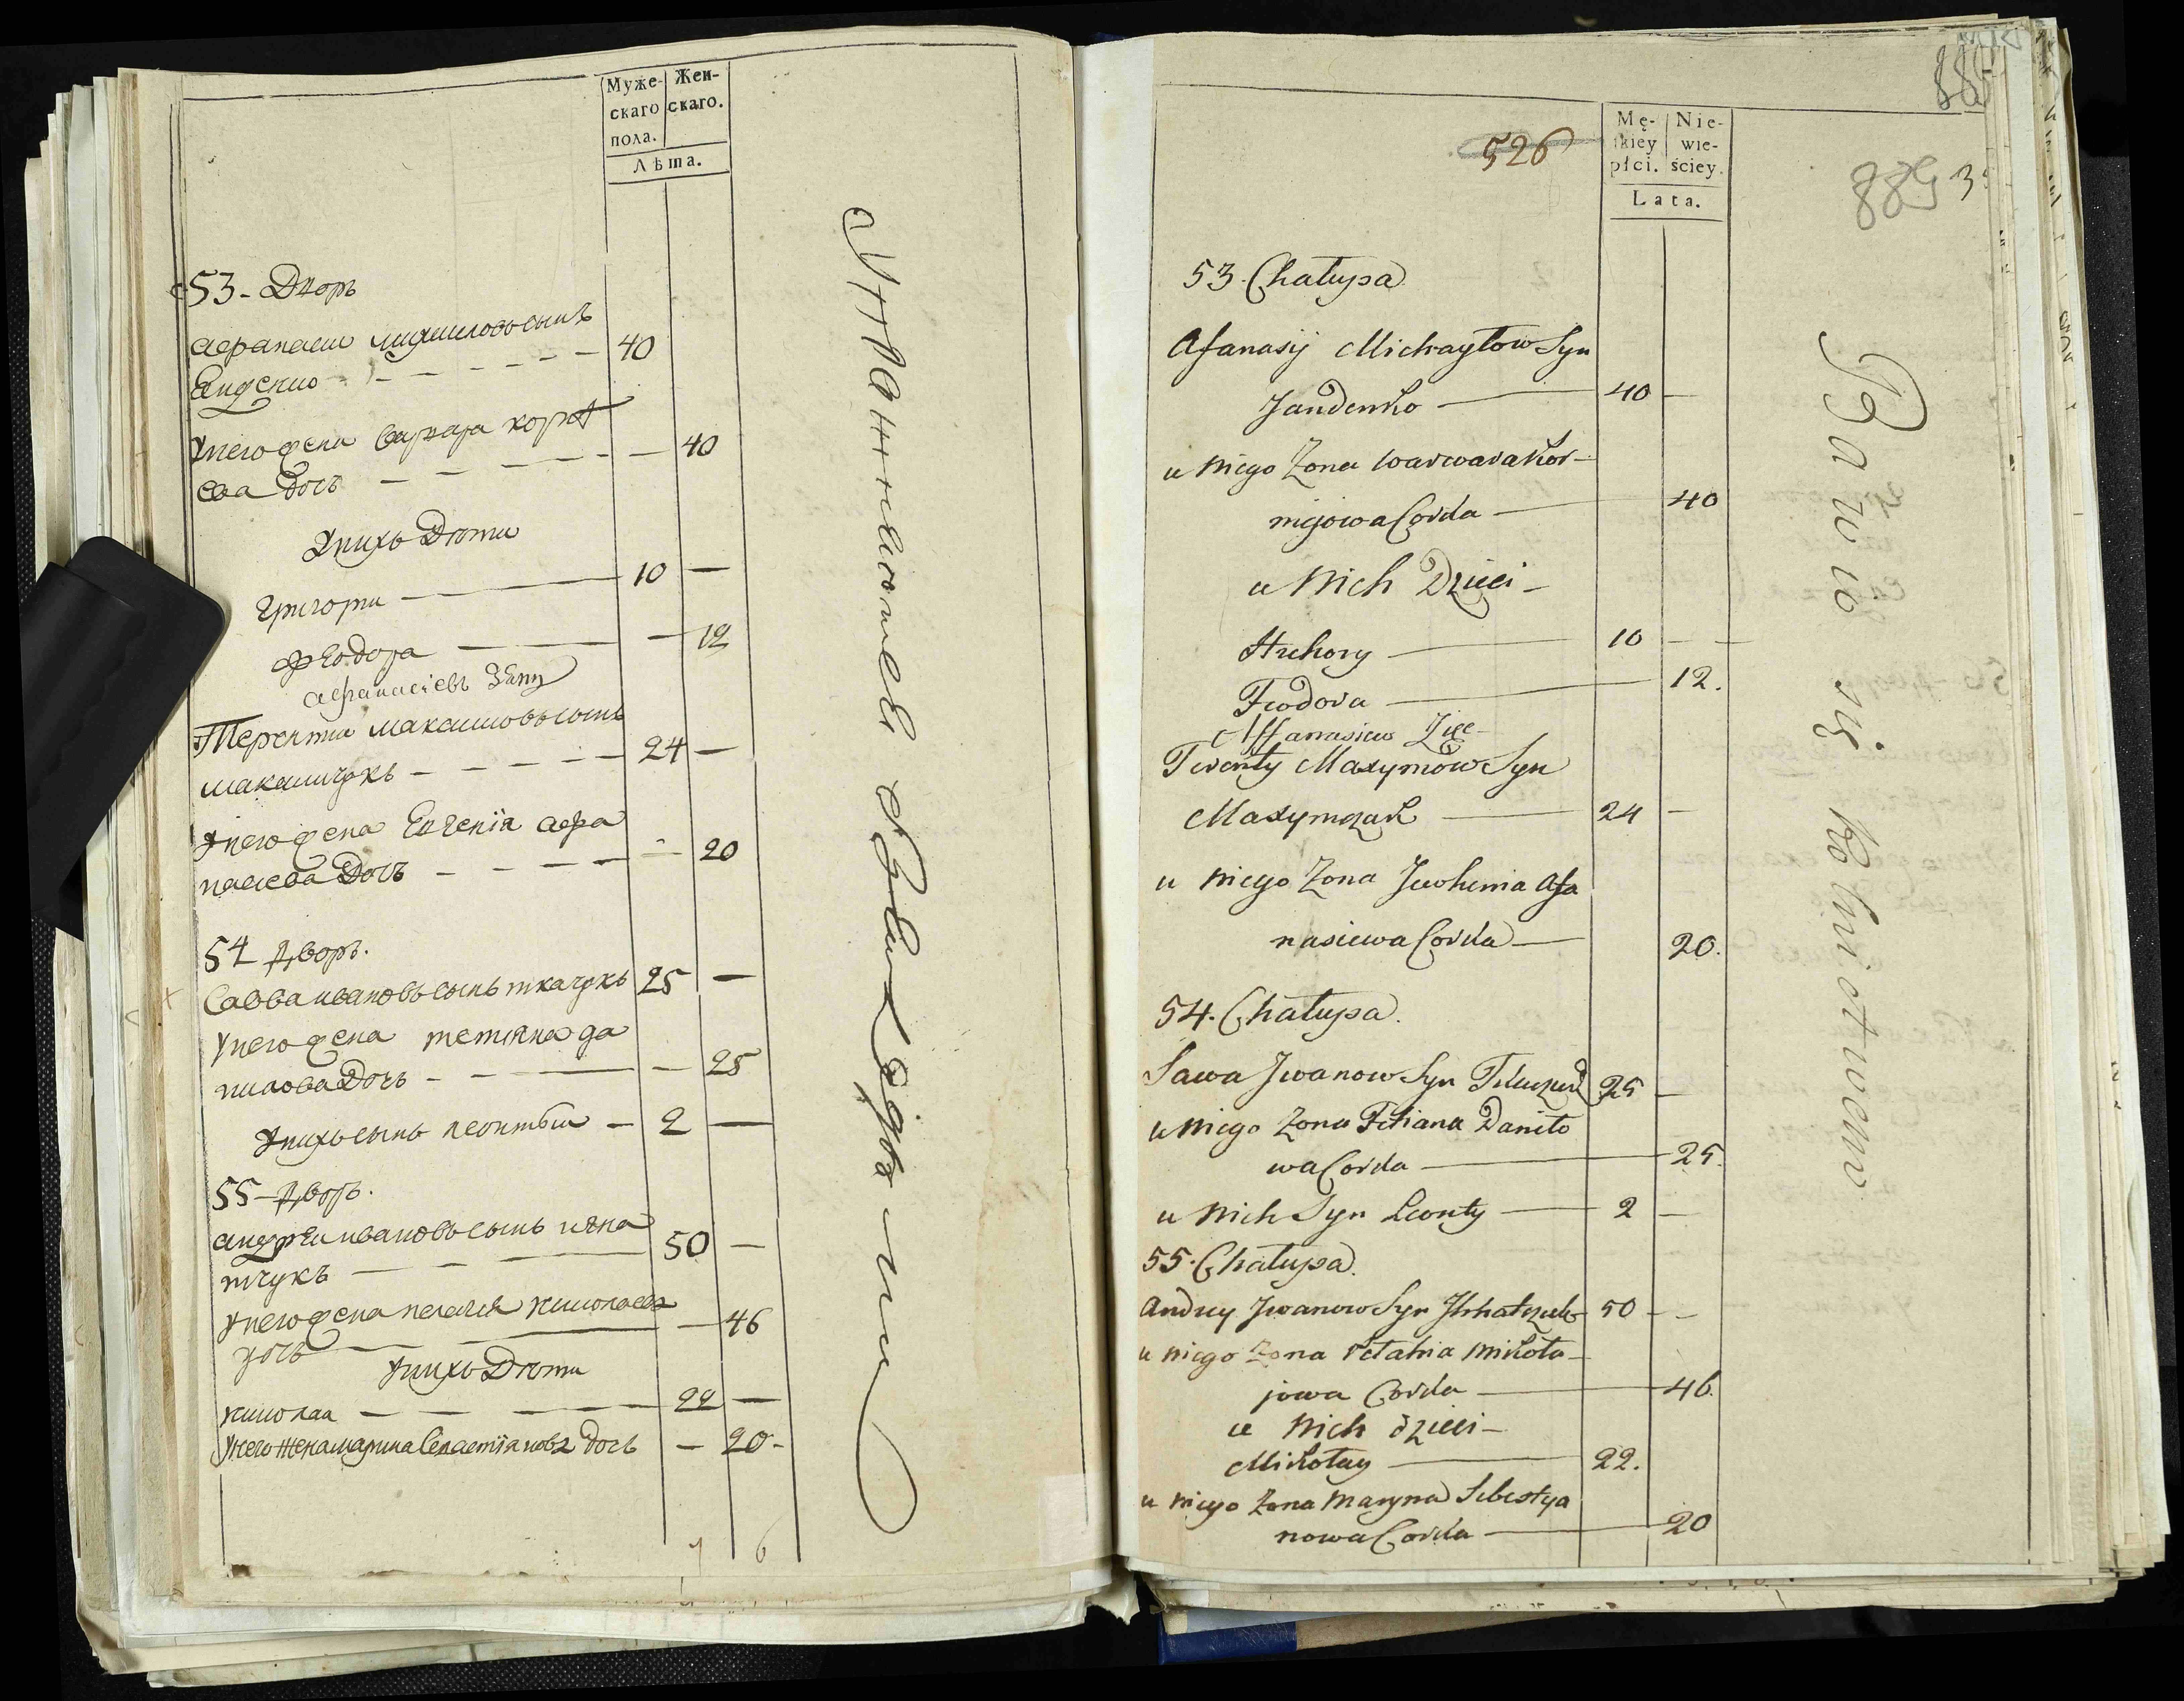 Муже-
скаго
пола.
Жен-
скаго.
Лѣта.
53 - Дворъ
Афанасии михаиловъ сынъ
Янденко 40
унего жена варвара корнѣ
ева Дочь 40
Унихъ Дѣти
Григорѝ 10 —
Феодора — 12
афанасіевъ Зять
Терентии максимовъ сынъ
максимчукъ 24 —
Унего жена Евгенія афа
насиева Дочъ 20
54 Дворъ.
Савва ивановъ сынъ ткачукъ 25 —
Унего жена тетяна да
нилова Дочь — 25
Унихъ сынъ леонтѣи — 2 —
55 - Дворъ.
андреи ивановъ сынъ игна
тчукъ 50 —
Унего жена пелагея николаева
дочь — 46
Унихъ Дѣти
николаи 22 —
Унего жена марина Севастіянова дочь — 20 -
Упражняются
526
Mę-
skiey
płci.
Nie-
wie-
ściey.
Lata.
588
53. Chałupa
Afanasij Michayłow Syn
Jandenko — 40 —
u niego Żona Warwara Kor-
nijowa Corka — 40
u Nich Dzieci -
Hrehory — 10 — —
Feodora — 12.
Affanasiew Zięć
Terenty Maxymow Syn
Maxymczuk — 24 —
u niego Żona Jewhenia Afa
nasiewa Corka — 20.
54. Chałupa.
Sawa Jwanow Syn Tkaczuk 25 —
u niego Żona Tetiana Daniło
wa Corka — 25.
u Nich Syn Leonty — 2 —
55. Chałupa.
Andrey Jwanow Syn Ihnatczuk 50 - -
u niego Żona Pełahia Mikoła-
jowa Corka — 46.
u Nich dzieci -
Mikołay — 22.
u niego Żona Maryna Sebestya
nowa Corka — 20
Bawią się Rolnictwem